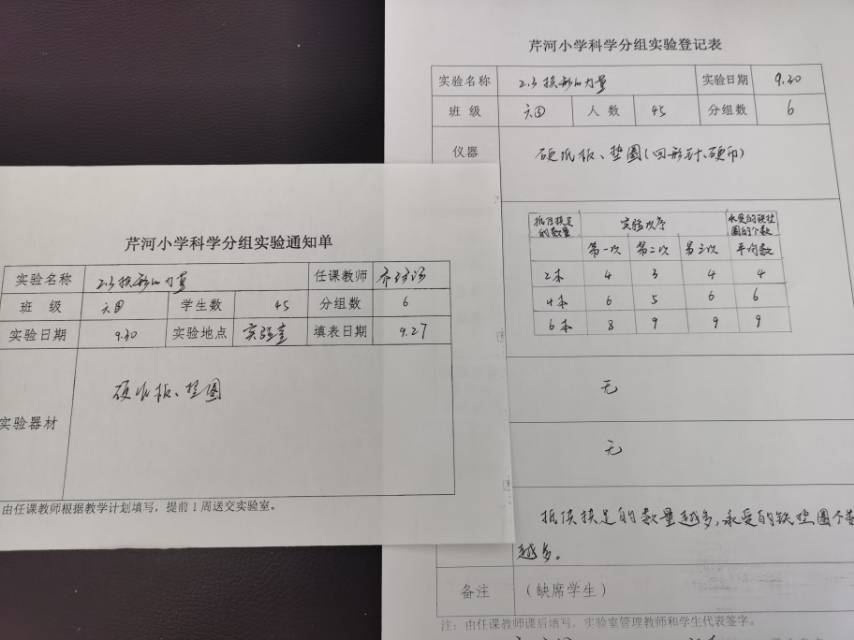 芹河小学科学分组实验通知单
实验名称 2.3拱形的力量 任课教师
班 级 六④ 学生数 45 分组数 6
实验日期 9.30 实验地点 实验室 填表日期 9.27
实验器材 硬纸板、垫圈
由任课教师根据教学计划填写，提前1周送交实验室。
芹河小学科学分组实验登记表
实验名称 2.3拱形的力量 实验日期 9.30
班 级 六④ 人 数 45 分组数 6
仪器 硬纸板、垫圈(回形针、硬币)
抵住拱足的数量 实验次序 承受的铁垫圈的个数
第一次 第二次 第三次 平均数
2本 4 3 4 4
4本 6 5 6 6
6本 8 9 9 9
无
无
抵住拱足的数量越多,承受的铁垫圈个数
越多。
备注 (缺席学生)
注：由任课教师课后填写，实验室管理教师和学生代表签字。